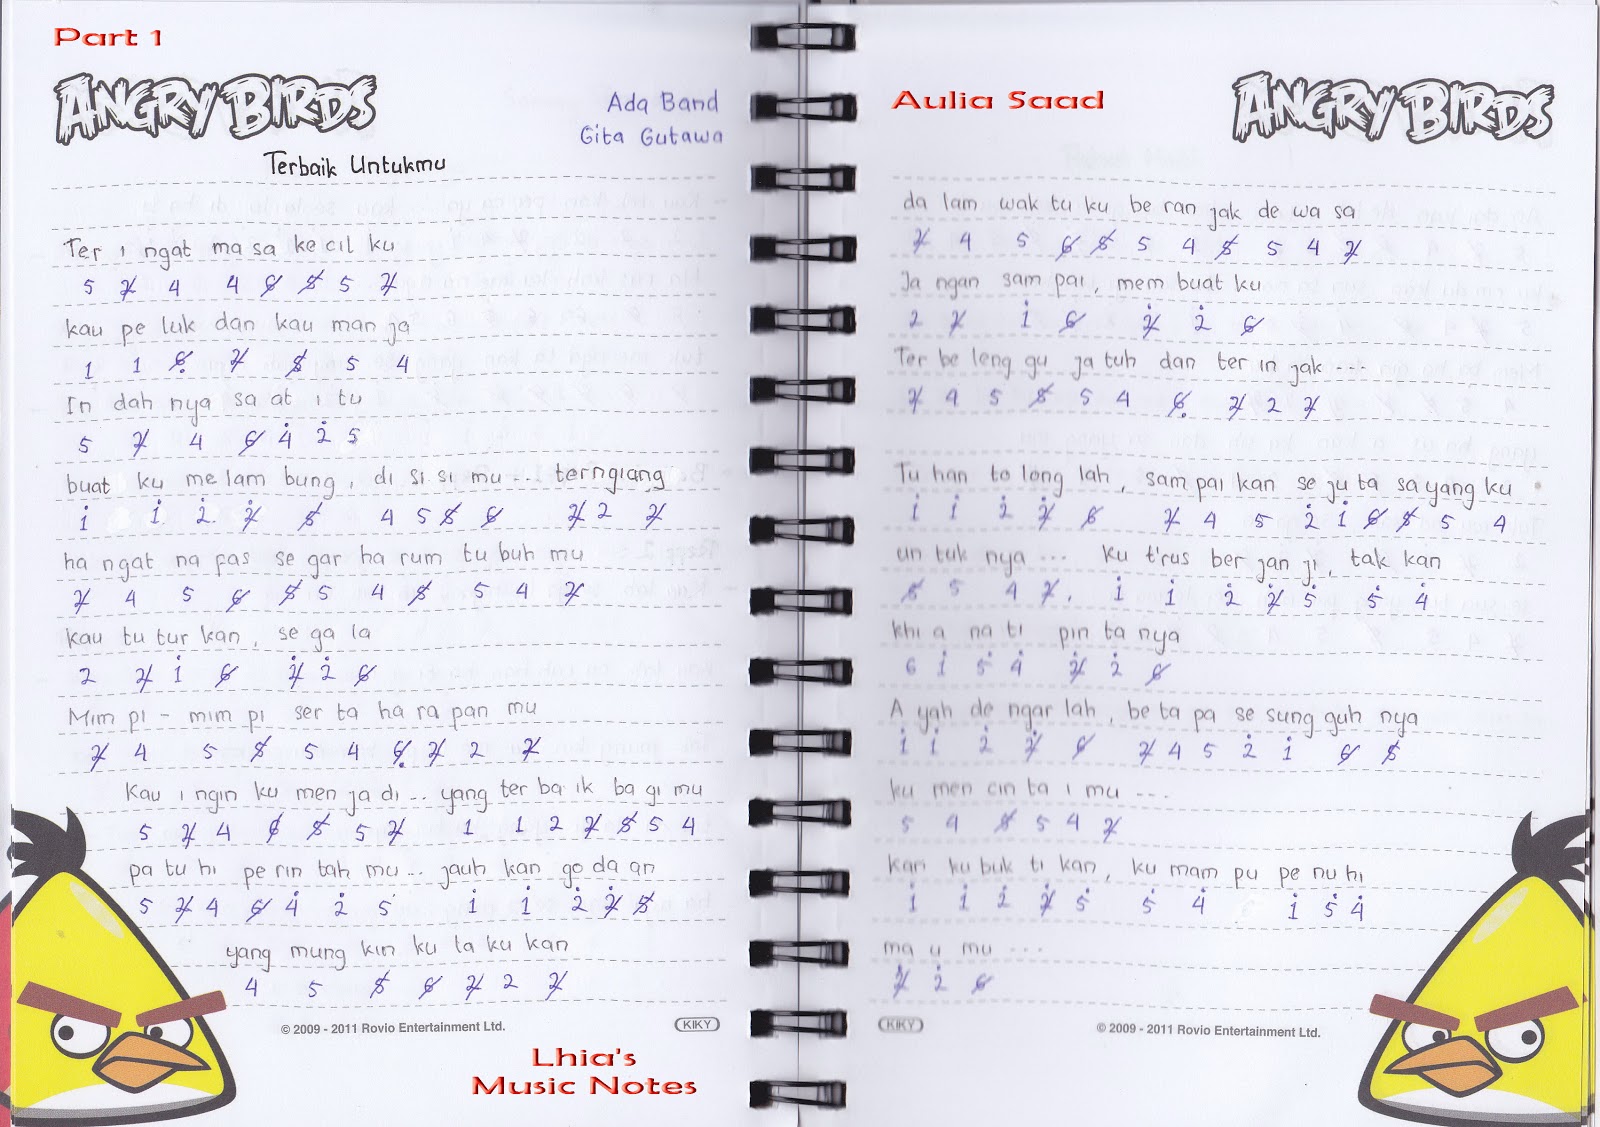 Part 1
ANGRY BIRDS
Ada Band
Gita Gutawa
Terbaik Untukmu
Ter i ngat ma sa ke cil ku
5 2̸ 4 4 6̸ 5̸ 5 2̸
kau pe luk dan kau man ja
1 1 6̸̣ 2̸ 5̸ 5 4
In dah nya sa at i tu
5 2̸ 4 6̸ 4̇ 2̇ 5
buat ku me lam bung, di si si mu... terngiang
1̇ 1̇ 2̇ 2̸̇ 5̸ 4 5 5̸ 6̸ 2̸ 2 2̸
ha ngat na pas se gar ha rum tu buh mu
2̸ 4 5 6̸ 5̸ 5 4 5̸ 5 4 2̸
kau tu tur kan, se ga la
2 2̸ 1̇ 6̸ 2̸̇ 2̇ 6̸
Mim pi - mim pi ser ta ha ra pan mu
2̸ 4 5 5̸ 5 4 6̸̣ 2̸ 2 2̸
Kau i ngin ku men ja di... yang ter ba ik ba gi mu
5 2̸ 4 6̸ 5̸ 5 2̸ 1 1 2 2̸ 5̸ 5 4
pa tu hi pe rin tah mu... jauh kan go da an
5 2̸ 4 6̸ 4̇ 2̇ 5 1̇ 1̇ 2̇ 2̸̇ 5̸
yang mung kin ku la ku kan
4 5 5̸ 6̸ 2̸ 2 2̸
© 2009 - 2011 Rovio Entertainment Ltd.
KIKY
Lhia's
Music Notes
Aulia Saad
ANGRY BIRDS
da lam wak tu ku be ran jak de wa sa
2̸ 4 5 6̸ 5̸ 5 4 5̸ 5 4 2̸
Ja ngan sam pai, mem buat ku
2 2̸ 1̇ 6̸ 2̸̇ 2̇ 6̸
Ter be leng gu ja tuh dan ter in jak ...
2̸ 4 5 5̸ 5 4 6̸̣ 2̸ 2 2̸
Tu han to long lah, sam pai kan se ju ta sa yang ku
1̇ 1̇ 2̇ 2̸̇ 6̸ 2̸ 4 5 2̇ 1̇ 6̸ 5̸ 5 4
un tuk nya ... ku t'rus ber jan ji, tak kan
5̸ 5 4 2̸. 1̇ 1̇ 2̇ 2̸̇ 5̇ 5̇ 4̇
khi a na ti pin ta nya
6 1̇ 5̇ 4̇ 2̸̇ 2̇ 6̸
A yah de ngar lah, be ta pa se sung guh nya
1̇ 1̇ 2̇ 2̸̇ 6̸ 2̸ 4 5 2̇ 1̇ 6̸ 5̸
ku men cin ta i mu ...
5 4 5̸ 5 4 2̸
kan ku buk ti kan, ku mam pu pe nu hi
1̇ 1̇ 2̇ 2̸̇ 5̇ 5̇ 4̇ 1̇ 5̇ 4̇
ma u mu ...
2̸̇ 2̇ 6̸
KIKY
© 2009 - 2011 Rovio Entertainment Ltd.